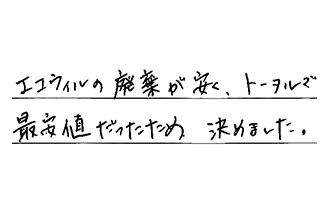 エコウィルの廃棄が安く、トータルで
最安値だったため 決めました。